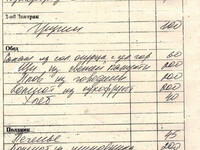 2-ой Завтрак
100
Обед
Салат из сол огурца с луком 60
Щи из свежей капусты 200
Плов из говядины 200
Компот из сухофруктов 200
Хлеб 40
Полдник
Печенье 45
200